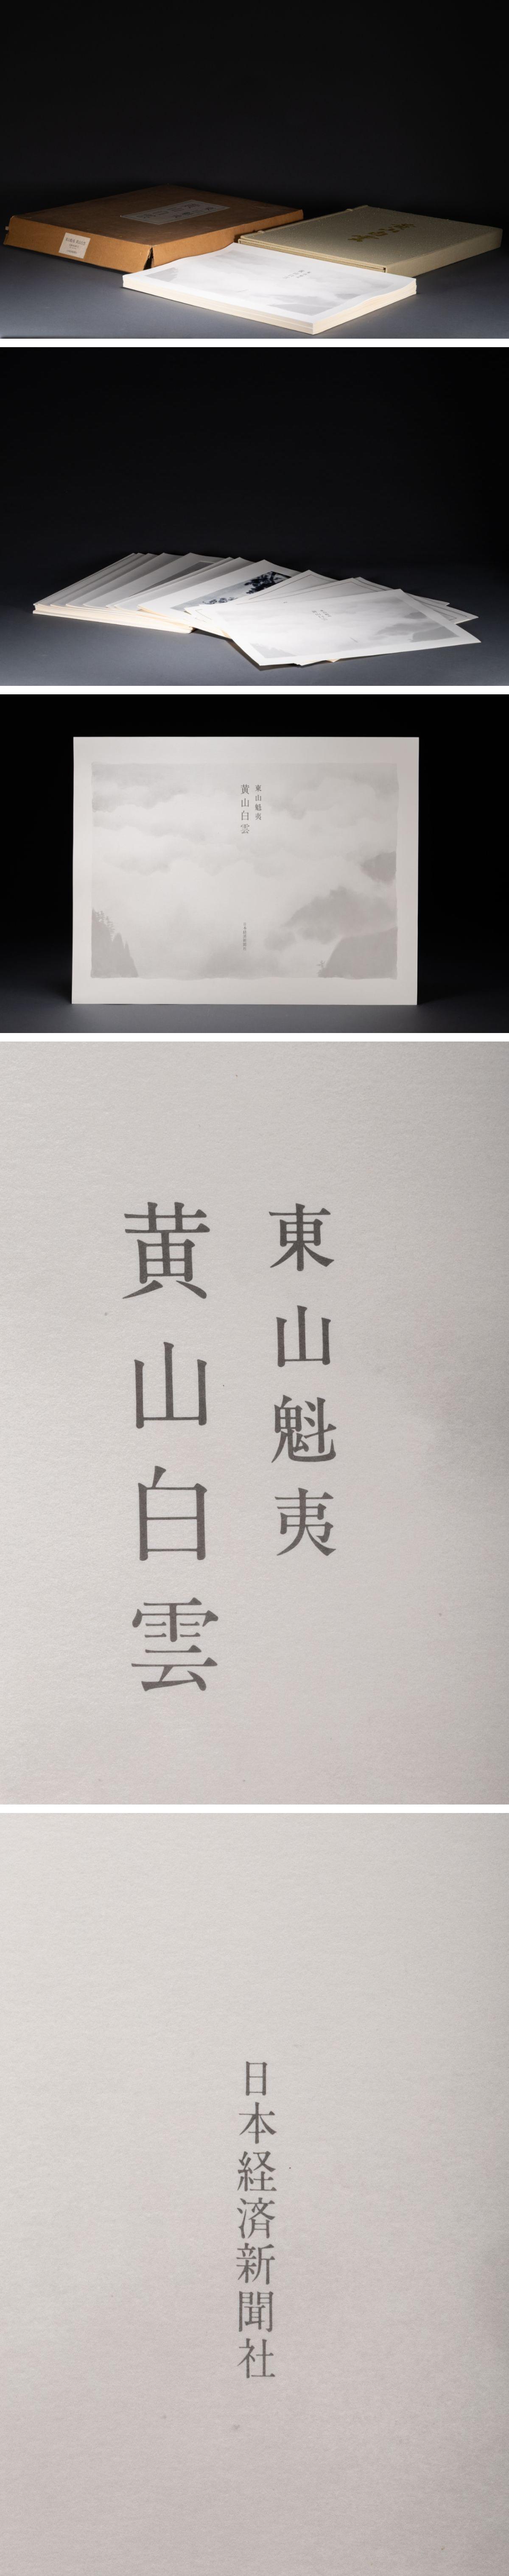 東山魁夷
黄山白雲
日本経済新聞社
東山魁夷
黄山白雲
日本経済新聞社